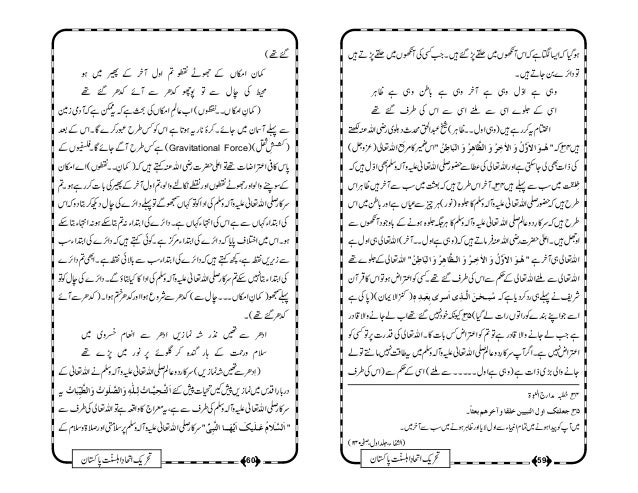 ہو گیا کہ ایسا لگتا ہے کہ اس آنکھوں میں حلقے پڑ گئے ہیں۔ جب کسی کی آنکھوں میں حلقے پڑتے ہیں
تو دائرے بن جاتے ہیں۔
وہی ہے اوّل وہی ہے آخر وہی ہے باطن وہی ہے ظاہر
اسی کے جلوے اسی سے ملنے اسی سے اس کی طرف گئے تھے
اختتام یہ کر رہے ہیں (وہی اول۔۔ظاہر) شیخ عبدالحق محدث دہلوی رضی اللہ عنہ لکھتے
ہیں ۳۴ کہ " هُوَ الْاَوَّلُ وَ الْاٰخِرُ وَ الظَّاهِرُ وَ الْبَاطِنُ" اس ضمیر کا مرجع اللہ تعالیٰ (عزوجل)
کی ذات بھی لی جا سکتی ہے اور اللہ تعالیٰ کی عطا سے حضور صلی اللہ تعالیٰ علیہ وآلہ وسلم بھی اوّل ہیں کہ
خلقت میں سب سے پہلے ہیں ۳۵۔ آخر اس طرح ہیں کہ بعثت میں سب سے آخر ہیں ظاہر اس
طرح ہیں کہ حضور صلی اللہ تعالیٰ علیہ وآلہ وسلم کا جلوہ (نور) ہر چیز سے عیاں ہے اور باطن میں اس
طرح ہیں کہ سرکار دو عالم صلی اللہ تعالیٰ علیہ وآلہ وسلم کا ہر جگہ جلوہ ہونے کے باوجود آنکھوں سے
اوجھل ہیں۔ اعلیٰ حضرت رضی اللہ عنہ فرماتے ہیں کہ (وہی ہے اول۔۔آخر) اللہ تعالیٰ ہی اول ہے
اللہ تعالیٰ ہی آخر ہے " هُوَ الْاَوَّلُ وَ الْاٰخِرُ وَ الظَّاهِرُ وَ الْبَاطِنُ" اللہ تعالیٰ کے جلوے تھے
اللہ تعالیٰ سے ملنے اللہ تعالیٰ کے حکم سے اس کی طرف گئے تھے۔ کسی کو اعتراض ہو تو اس کا قرآن
شریف نے پہلے ہی رد کر دیا ہے کہ سُبْحٰنَ الَّذِیْ اَسْرٰی بِعَبْدِهٖ (کنز الایمان) (پاکی ہے
اسے جو اپنے بندے کو راتوں رات لے گیا) کیونکہ خود نہیں گئے تھے اب لے جانے والا قادر
ہے جب لے جانے والا قادر ہے تو تم کو اعتراض کس بات کا۔ اللہ تعالیٰ کی قدرت پر تو کسی کو
اعتراض نہیں ہے۔ اگر آپ سرکار صلی اللہ تعالیٰ علیہ وآلہ وسلم میں یہ طاقت نہیں مانتے تو لے
جانے والی بڑی ذات ہے (وہی ہے اول۔۔۔۔۔ سے ملنے) اسی کے حکم سے (اس کی طرف
۳۴ خطبہ مدارج النبوۃ
۳۵ جعلتک اول النبیین خلقا و آخرھم بعثاً۔
میں آپ کو پیدا ہونے میں تمام انبیاء سے اول لایا اور ظاہر ہونے میں سب سے آخر میں۔
59
تحریک اتحاد اہلسنّت پاکستان
گئے تھے)
کمان امکاں کے جھوٹے نقطو تم اول آخر کے پھیر میں ہو
محیط کی چال سے تو پوچھو کدھر سے آئے کدھر گئے تھے
(کمان امکاں۔۔نقطوں) اب عالم امکاں کی بحث ہے کہ یہ ممکن ہے کہ آدمی زمین
سے پہلے آسمان میں جائے۔ کرۂ نار یہ ہوتا ہے اس کو کس طرح عبور کرے گا۔ اس کے بعد
(کشش ثقل) (Gravitational Force) ہے کس طرح آگے جائے گا۔ فلسفیوں کے
پاس کافی اعتراضات تھے تو اعلیٰ حضرت رضی اللہ عنہ کہتے ہیں کہ (کمان۔۔نقطوں) اے امکان
کے سوچنے والو اور جھوٹے نقطوں اور نقطے نکالنے والو، تم اول آخر کے پھیر کی بات کر رہے ہو۔ تم
سرکار صلی اللہ تعالیٰ علیہ وآلہ وسلم کی ادا کو تو کہاں سمجھو گے تو پہلے دائرے کی چال دیکھ کر بتا دو کہ اس
کی ابتداء کہاں سے ہے اس کی انتہاء کہاں ہے۔ دائرے کی ابتداء نہ تم بتا سکے ہو نہ انتہا بتا سکے
ہو۔ اس میں اختلاف پایا کہ دائرے کی ابتداء مرکز ہے۔ کوئی کہتے ہیں کہ دائرے کی ابتداء سب
سے زیریں نقطہ ہے، کچھ کہتے ہیں کہ دائرے کی ابتداء سب سے بالائی نقطہ ہے۔ ابھی تم دائرے
کی ابتداء بتا نہیں سکے تم سرکار صلی اللہ تعالیٰ علیہ وآلہ وسلم کی ادا کا کیا بتاؤ گے۔ دائرے کی چال کو تو
پہلے سمجھو (کمان امکاں۔۔۔چال سے) کدھر سے شروع ہوا اور کدھر ختم ہوا۔ (کدھر سے آئے
کدھر گئے تھے)۔
ادھر سے تھیں نذر شہ نمازیں ادھر سے انعام خسروی میں
سلام ورحمت کے ہار گندھ کر گلوئے پر نور میں پڑے تھے
(ادھر سے تھیں شہ نمازیں) سرکار دو عالم صلی اللہ تعالیٰ علیہ وآلہ وسلم نے اللہ تعالیٰ کے
دربار اقدس میں نمازیں پیش کیں تحیات پیش کئے اَلتَّحِیَّاتُ لِلّٰہِ وَ الصَّلَوٰتُ وَ الطَّیِّبَاتُ یہ
سرکار صلی اللہ تعالیٰ علیہ وآلہ وسلم کی طرف سے ہے، یہ معراج کا واقعہ ہے تو اللہ تعالیٰ کی طرف سے
" اَلسَّلَامُ عَلَیْکَ اَیُّهَا النَّبِیُّ" سرکار صلی اللہ تعالیٰ علیہ وآلہ وسلم پر سلامتی اور صلاۃ و سلام کے
60
تحریک اتحاد اہلسنّت پاکستان